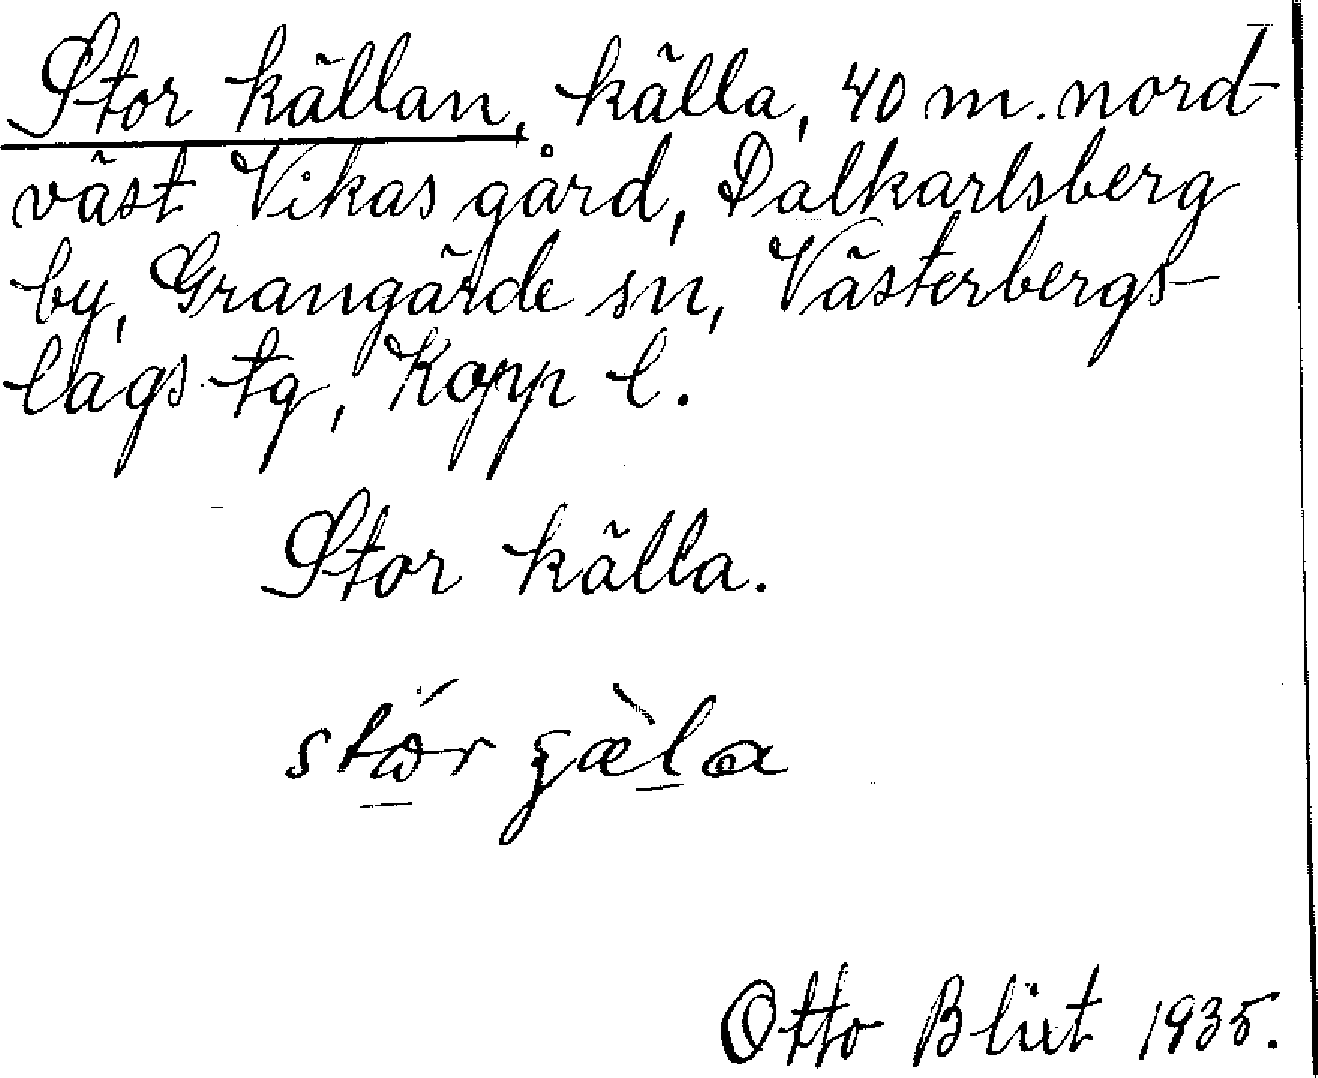 Stor källan, källa, 40 m. nord-
väst Vikas gård, Dalkarlsberg
by, Grangärde sn, Västerbergs-
lags tg, Kopp l.
Stor källa.
Otto Blixt 1935.